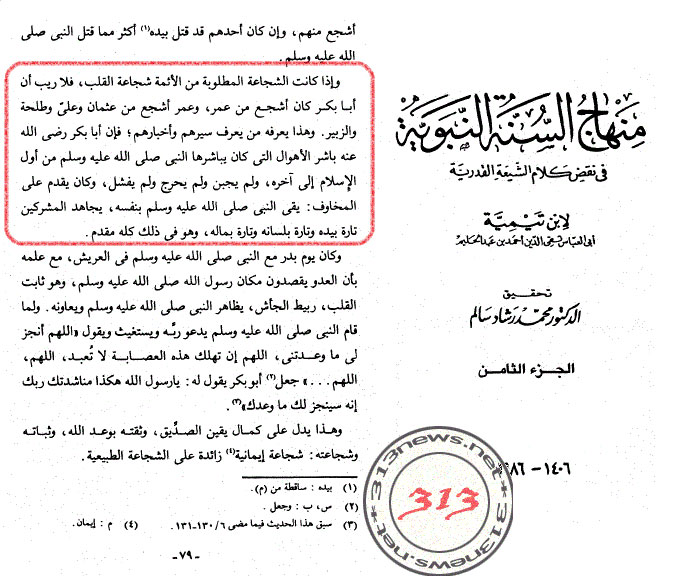 منهاج السنة النبوية
فى نقض كلام الشيعة القدرية
لابن تيمية
أبى العباس تقى الدين أحمد بن عبد الحليم
تحقيق
الدكتور محمد رشاد سالم
الجزء الثامن
١٤٠٦ - ١٩٨٦
313news.net
313
313news.net
أشجع منهم، وإن كان أحدهم قد قتل بيده(١) أكثر مما قتل النبى صلى
الله عليه وسلم.
وإذا كانت الشجاعة المطلوبة من الأئمة شجاعة القلب، فلا ريب أن
أبا بكر كان أشجع من عمر، وعمر أشجع من عثمان وعلىّ وطلحة
والزبير. وهذا يعرفه من يعرف سيرهم وأخبارهم؛ فإن أبا بكر رضى الله
عنه باشر الأهوال التى كان يباشرها النبى صلى الله عليه وسلم من أول
الإسلام إلى آخره، ولم يجبن ولم يحرج ولم يفشل، وكان يقدم على
المخاوف: يقى النبى صلى الله عليه وسلم بنفسه، يجاهد المشركين
تارة بيده وتارة بلسانه وتارة بماله، وهو فى ذلك كله مقدم.
وكان يوم بدر مع النبى صلى الله عليه وسلم فى العريش، مع علمه
بأن العدو يقصدون مكان رسول الله صلى الله عليه وسلم، وهو ثابت
القلب، ربيط الجأش، يظاهر النبى صلى الله عليه وسلم ويعاونه. ولما
قام النبى صلى الله عليه وسلم يدعو ربّه ويستغيث ويقول «اللهم أنجز
لى ما وعدتنى، اللهم إن تهلك هذه العصابة لا تُعبد، اللهم،
اللهم...» جعل(٢) أبو بكر يقول له: يارسول الله هكذا مناشدتك ربك
إنه سينجز لك ما وعدك»(٣).
وهذا يدل على كمال يقين الصدِّيق، وثقته بوعد الله، وثباته
وشجاعته: شجاعة إيمانية(٤) زائدة على الشجاعة الطبيعية.
(١) بيده: ساقطة من (م).
(٢) س، ب: وجعل.
(٣) سبق هذا الحديث فيما مضى ١٣٠/٦-١٣١. (٤) م: إيمان.
-٧٩-